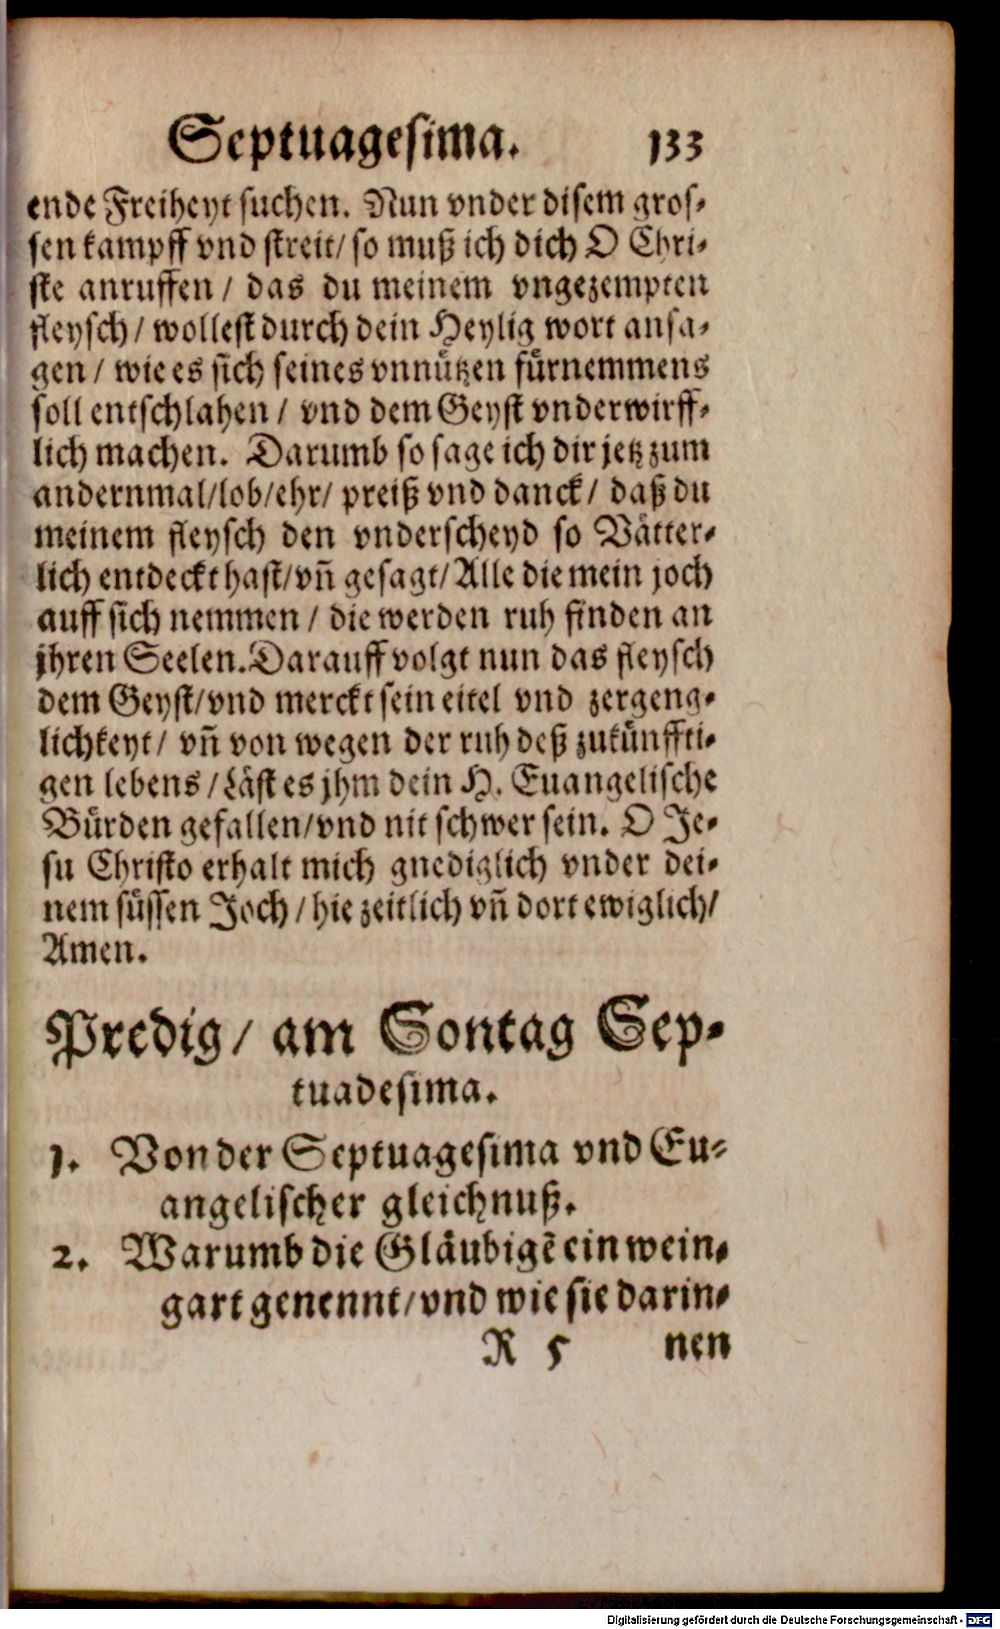 Septuagesima. 133
ende Freiheyt suchen. Nun vnder disem gros-
sen kampff vnd streit/ so muß ich dich O Chri-
ste anruffen / das du meinem vngezempten
fleysch / wollest durch dein Heylig wort ansa-
gen / wie es sich seines vnnützen fürnemmens
soll entschlahen / vnd dem Geyst vnderwirff-
lich machen. Darumb so sage ich dir jetz zum
andernmal/lob/ehr/ preiß vnd danck / daß du
meinem fleysch den vnderscheyd so Vätter-
lich entdeckt hast/vñ gesagt/Alle die mein joch
auff sich nemmen / die werden ruh finden an
jhren Seelen.Darauff volgt nun das fleysch
dem Geyst/vnd merckt sein eitel vnd zergeng-
lichkeyt/ vñ von wegen der ruh deß zukünffti-
gen lebens /Läst es jhm dein H. Euangelische
Bürden gefallen/vnd nit schwer sein. O Je-
su Christo erhalt mich gnediglich vnder dei-
nem süssen Joch / hie zeitlich vñ dort ewiglich/
Amen.
Predig/ am Sontag Sep-
tuadesima.
1. Von der Septuagesima vnd Eu-
angelischer gleichnuß.
2. Warumb die Gläubigẽ ein wein-
gart genennt/vnd wie sie darin-
R 5 nen
Digitalisierung gefördert durch die Deutsche Forschungsgemeinschaft - DFG